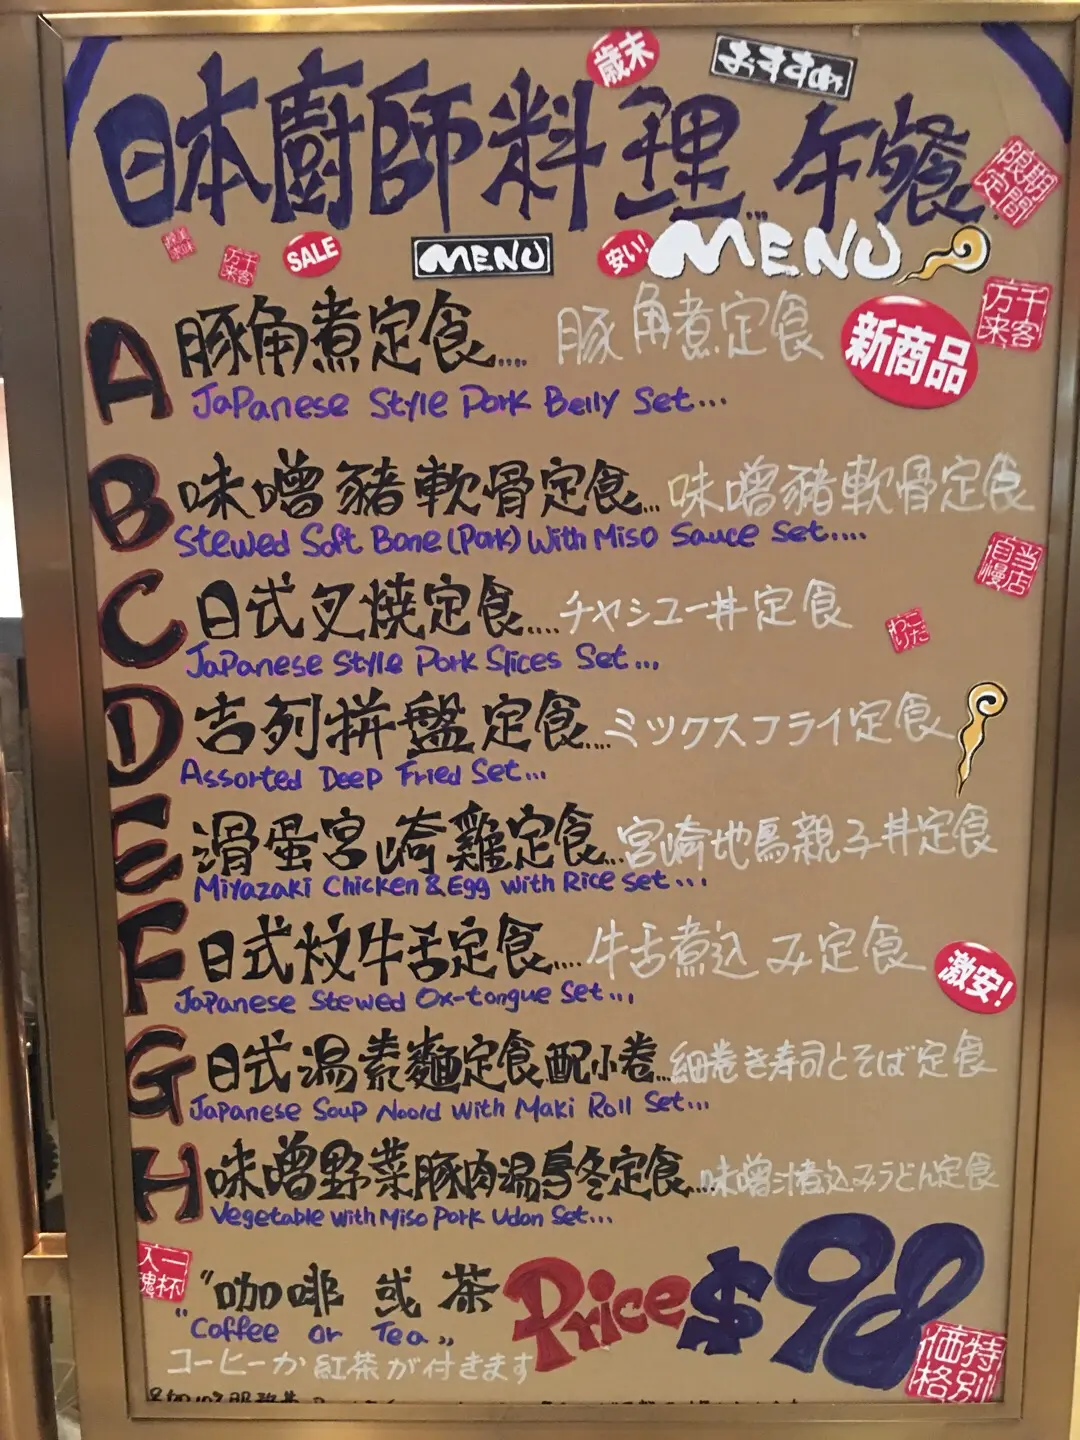 歳末
おすすめ
日本廚師料理...午餐
期間限定
美味探求
千客万来
SALE
MENU
安い!
MENU
A 豚角煮定食.... 豚角煮定食
新商品
千客万来
Japanese Style Pork Belly Set...
B 味噌豬軟骨定食... 味噌豬軟骨定食
Stewed Soft Bone (Pork) With Miso Sauce Set....
当店自慢
C 日式叉燒定食.... チャシュー丼定食
こだわり
Japanese Style Pork Slices Set...
D 吉列拼盤定食... ミックスフライ定食
Assorted Deep Fried Set...
E 滑蛋宮崎雞定食... 宮崎地鳥親子丼定食
Miyazaki Chicken & Egg with Rice set...
F 日式炆牛舌定食.... 牛舌煮込み定食
激安!
Japanese Stewed Ox-tongue Set...
G 日式湯素麵定食配小卷... 細巻き寿司とそば定食
Japanese Soup Noold With Maki Roll Set...
H 味噌野菜豚肉湯烏冬定食... 味噌汁煮込みうどん定食
Vegetable with Miso Pork Udon Set...
一杯入魂
"咖啡 或 茶
"Coffee or Tea"
Price $98
コーヒーか紅茶が付きます
特別価格